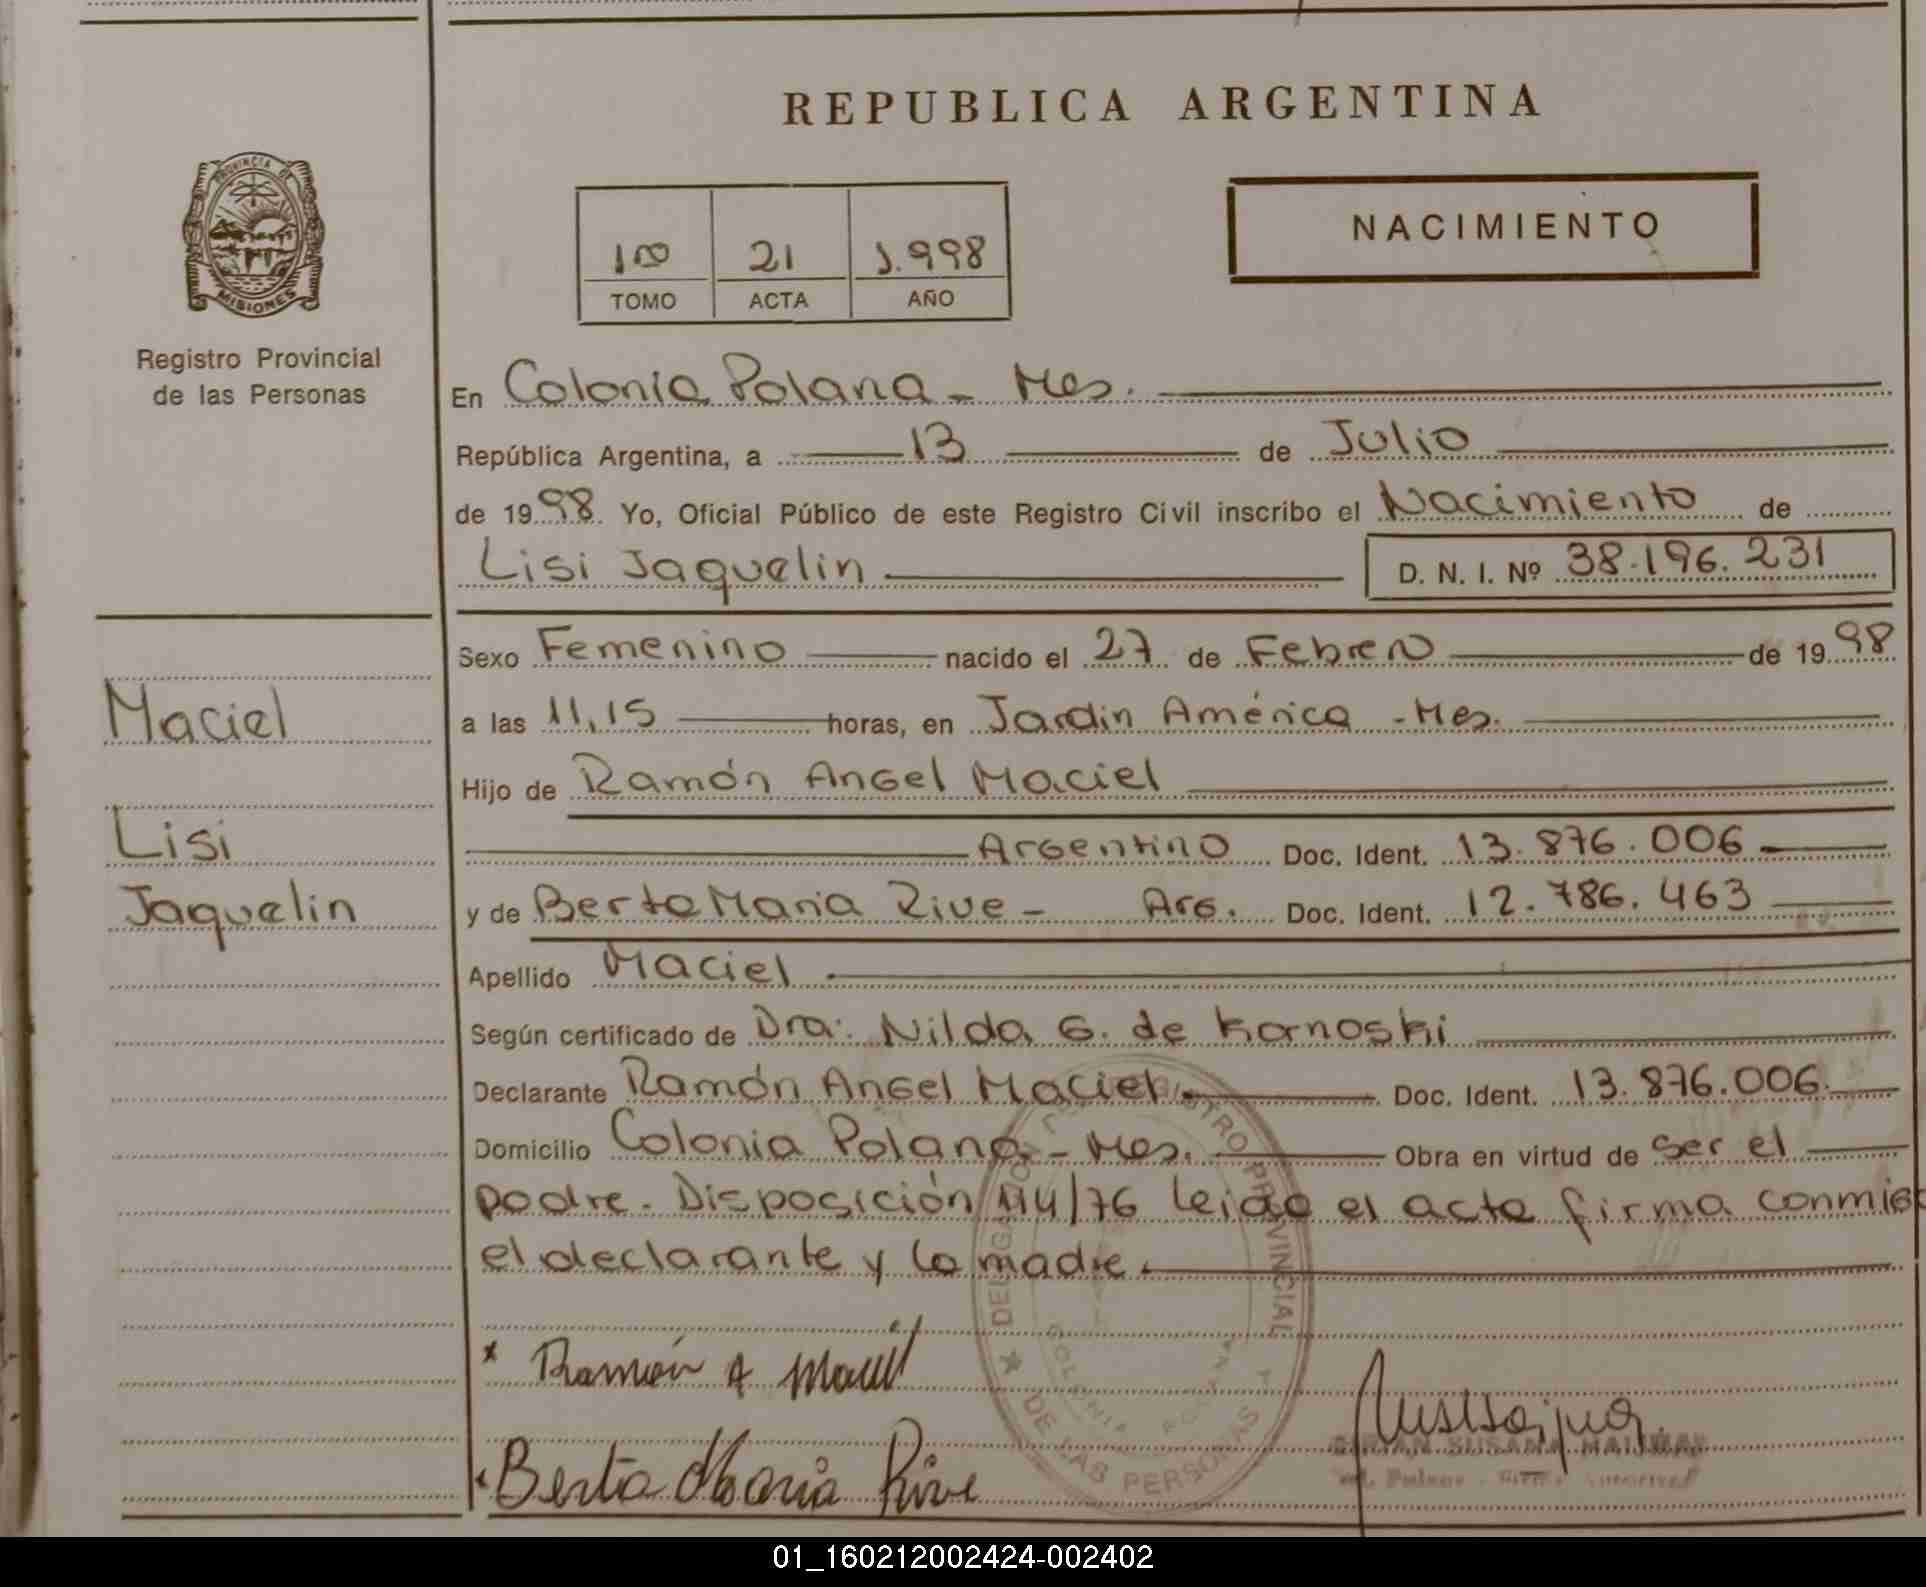 REPUBLICA ARGENTINA
PROVINCIA DE
MISIONES
Registro Provincial
de las Personas
100 21 1.998
TOMO ACTA AÑO
NACIMIENTO
En Colonia Polana - Mes.
República Argentina, a 13 de Julio
de 1998 Yo, Oficial Público de este Registro Civil inscribo el Nacimiento de
Lisi Jaquelin D. N. I. Nº 38.196.231
Maciel
Lisi
Jaquelin
Sexo Femenino nacido el 27 de Febrero de 1998
a las 11,15 horas, en Jardin América - Mes.
Hijo de Ramón Angel Maciel
Argentino Doc. Ident. 13.876.006
y de Berta Maria Rive - Arg. Doc. Ident. 12.786.463
Apellido Maciel
Según certificado de Dra: Nilda G. de Kornoski
Declarante Ramón Angel Maciel. Doc. Ident. 13.876.006.
Domicilio Colonia Polana - Mes. Obra en virtud de ser el
padre. Disposición 114/76 leida el acta firma conmigo
el declarante y la madre.
Ramón A Maciel
Berta Maria Rive
REGISTRO PROVINCIAL
DE LAS PERSONAS
COLONIA POLANA
SUSANA
01_160212002424-002402